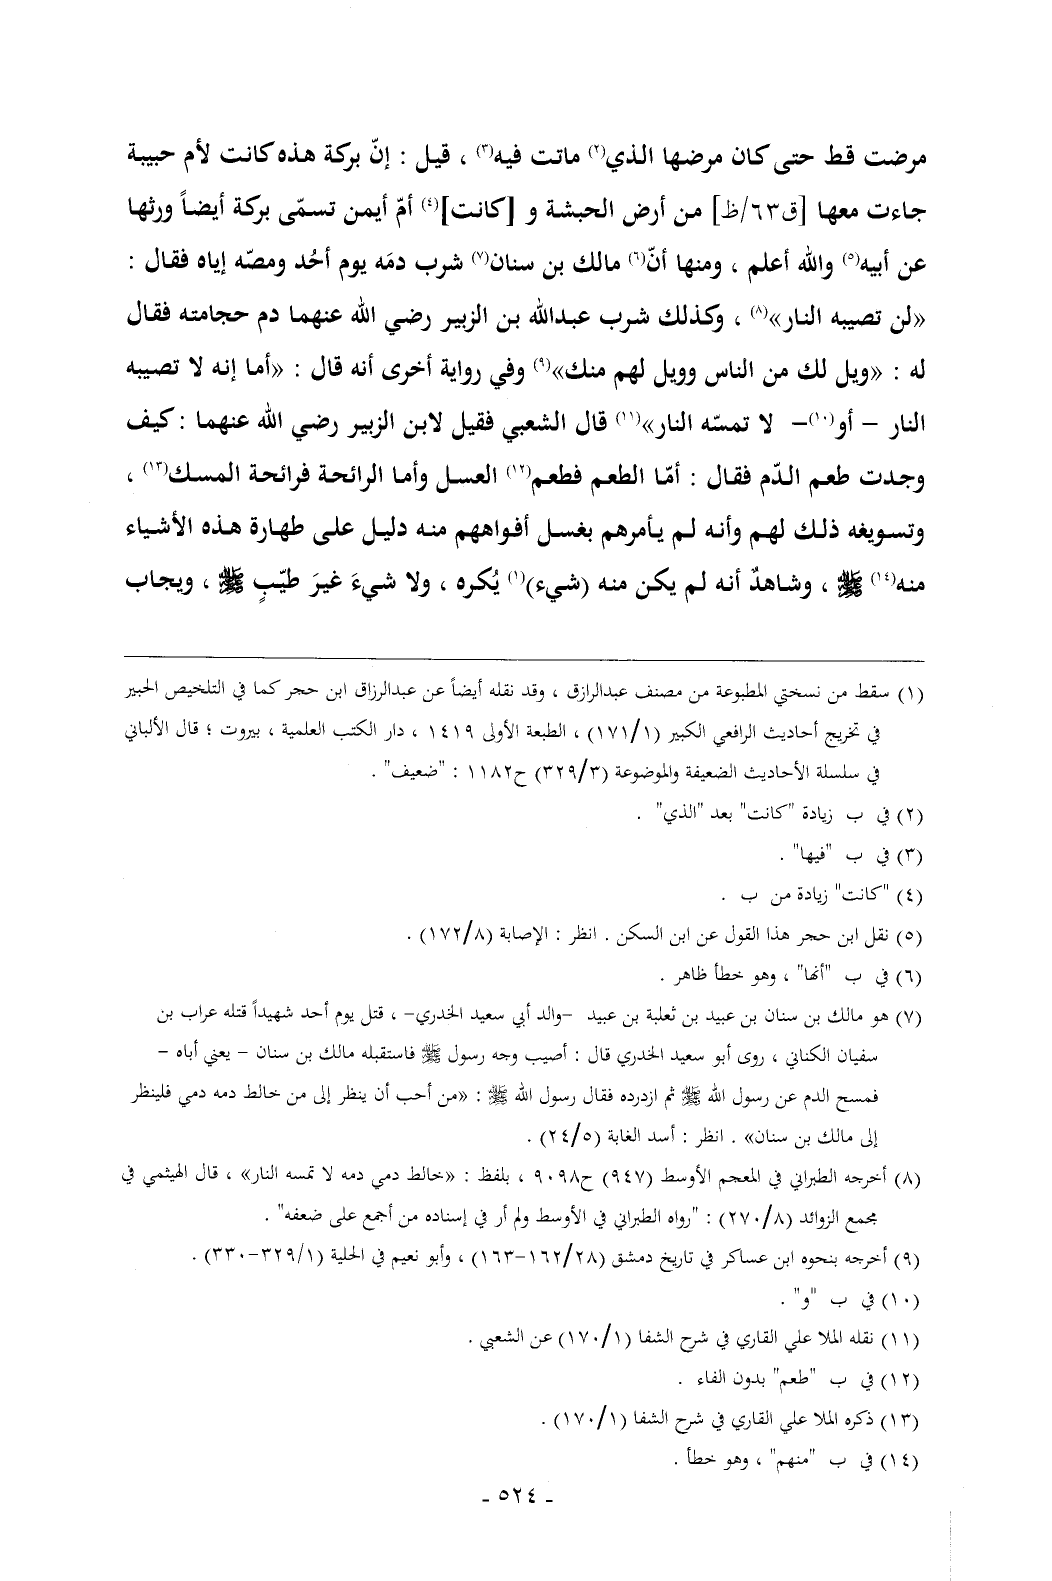 مرضت قط حتى كان مرضها الذي(٢) ماتت فيه(٣) ، قيل : إنّ بركة هذه كانت لأم حبيبة
جاءت معها [ق٦٣/ظ] من أرض الحبشة و [كانت](٤) أمّ أيمن تسمّى بركة أيضاً ورثها
عن أبيه(٥) والله أعلم ، ومنها أنّ(٦) مالك بن سنان(٧) شرب دمَه يوم أحُد ومصّه إياه فقال :
«لن تصيبه النار»(٨) ، وكذلك شرب عبدالله بن الزبير رضي الله عنهما دم حجامته فقال
له : «ويل لك من الناس وويل لهم منك»(٩) وفي رواية أخرى أنه قال : «أما إنه لا تصيبه
النار – أو(١٠)– لا تمسّه النار»(١١) قال الشعبي فقيل لابن الزبير رضي الله عنهما : كيف
وجدت طعم الدّم فقال : أمّا الطعم فطعم(١٢) العسل وأما الرائحة فرائحة المسك(١٣) ،
وتسويغه ذلك لهم وأنه لم يأمرهم بغسل أفواههم منه دليل على طهارة هذه الأشياء
منه(١٤) ﷺ ، وشاهدٌ أنه لم يكن منه (شيء)(١) يُكره ، ولا شيءَ غيرَ طيّبٍ ﷺ ، ويجاب
(١) سقط من نسختي المطبوعة من مصنف عبدالرازق ، وقد نقله أيضاً عن عبدالرزاق ابن حجر كما في التلخيص الحبير
في تخريج أحاديث الرافعي الكبير (١٧١/١) ، الطبعة الأولى ١٤١٩ ، دار الكتب العلمية ، بيروت ؛ قال الألباني
في سلسلة الأحاديث الضعيفة والموضوعة (٣٢٩/٣) ح١١٨٢ : "ضعيف" .
(٢) في ب زيادة "كانت" بعد "الذي" .
(٣) في ب "فيها" .
(٤) "كانت" زيادة من ب .
(٥) نقل ابن حجر هذا القول عن ابن السكن . انظر : الإصابة (١٧٢/٨) .
(٦) في ب "أنها" ، وهو خطأ ظاهر .
(٧) هو مالك بن سنان بن عبيد بن ثعلبة بن عبيد –والد أبي سعيد الخدري– ، قتل يوم أحد شهيداً قتله عراب بن
سفيان الكناني ، روى أبو سعيد الخدري قال : أصيب وجه رسول ﷺ فاستقبله مالك بن سنان – يعني أباه –
فمسح الدم عن رسول الله ﷺ ثم ازدرده فقال رسول الله ﷺ : «من أحب أن ينظر إلى من خالط دمه دمي فلينظر
إلى مالك بن سنان» . انظر : أسد الغابة (٢٤/٥) .
(٨) أخرجه الطبراني في المعجم الأوسط (٩٤٧) ح٩٠٩٨ ، بلفظ : «خالط دمي دمه لا تمسه النار» ، قال الهيثمي في
مجمع الزوائد (٢٧٠/٨) : "رواه الطبراني في الأوسط ولم أر في إسناده من أجمع على ضعفه" .
(٩) أخرجه بنحوه ابن عساكر في تاريخ دمشق (١٦٢/٢٨–١٦٣) ، وأبو نعيم في الحلية (٣٢٩/١–٣٣٠) .
(١٠) في ب "و" .
(١١) نقله الملا علي القاري في شرح الشفا (١٧٠/١) عن الشعبي .
(١٢) في ب "طعم" بدون الفاء .
(١٣) ذكره الملا علي القاري في شرح الشفا (١٧٠/١) .
(١٤) في ب "منهم" ، وهو خطأ .
- ٥٢٤ -